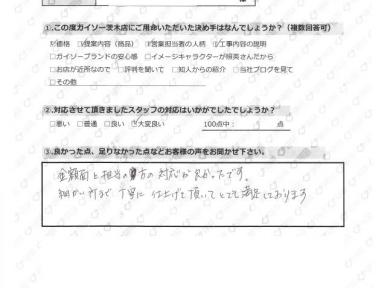 様
①.この度ガイソー茨木店にご用命いただいた決め手はなんでしょうか？（複数回答可）
☑価格 ☑提案内容（商品） ☑営業担当者の人柄 ☑工事内容の説明
□ガイソーブランドの安心感 □イメージキャラクターが照英さんだから
□お店が近所なので □評判を聞いて □知人からの紹介 □当社ブログを見て
□その他
②.対応させて頂きましたスタッフの対応はいかがでしたでしょうか？
□悪い □普通 □良い ☑大変良い 100点中： 点
③.良かった点、足りなかった点などお客様の声をお聞かせ下さい。
金額面と担当の方の対応が良かったです。
細かい所まで丁寧に仕上げて頂いてとても満足しております